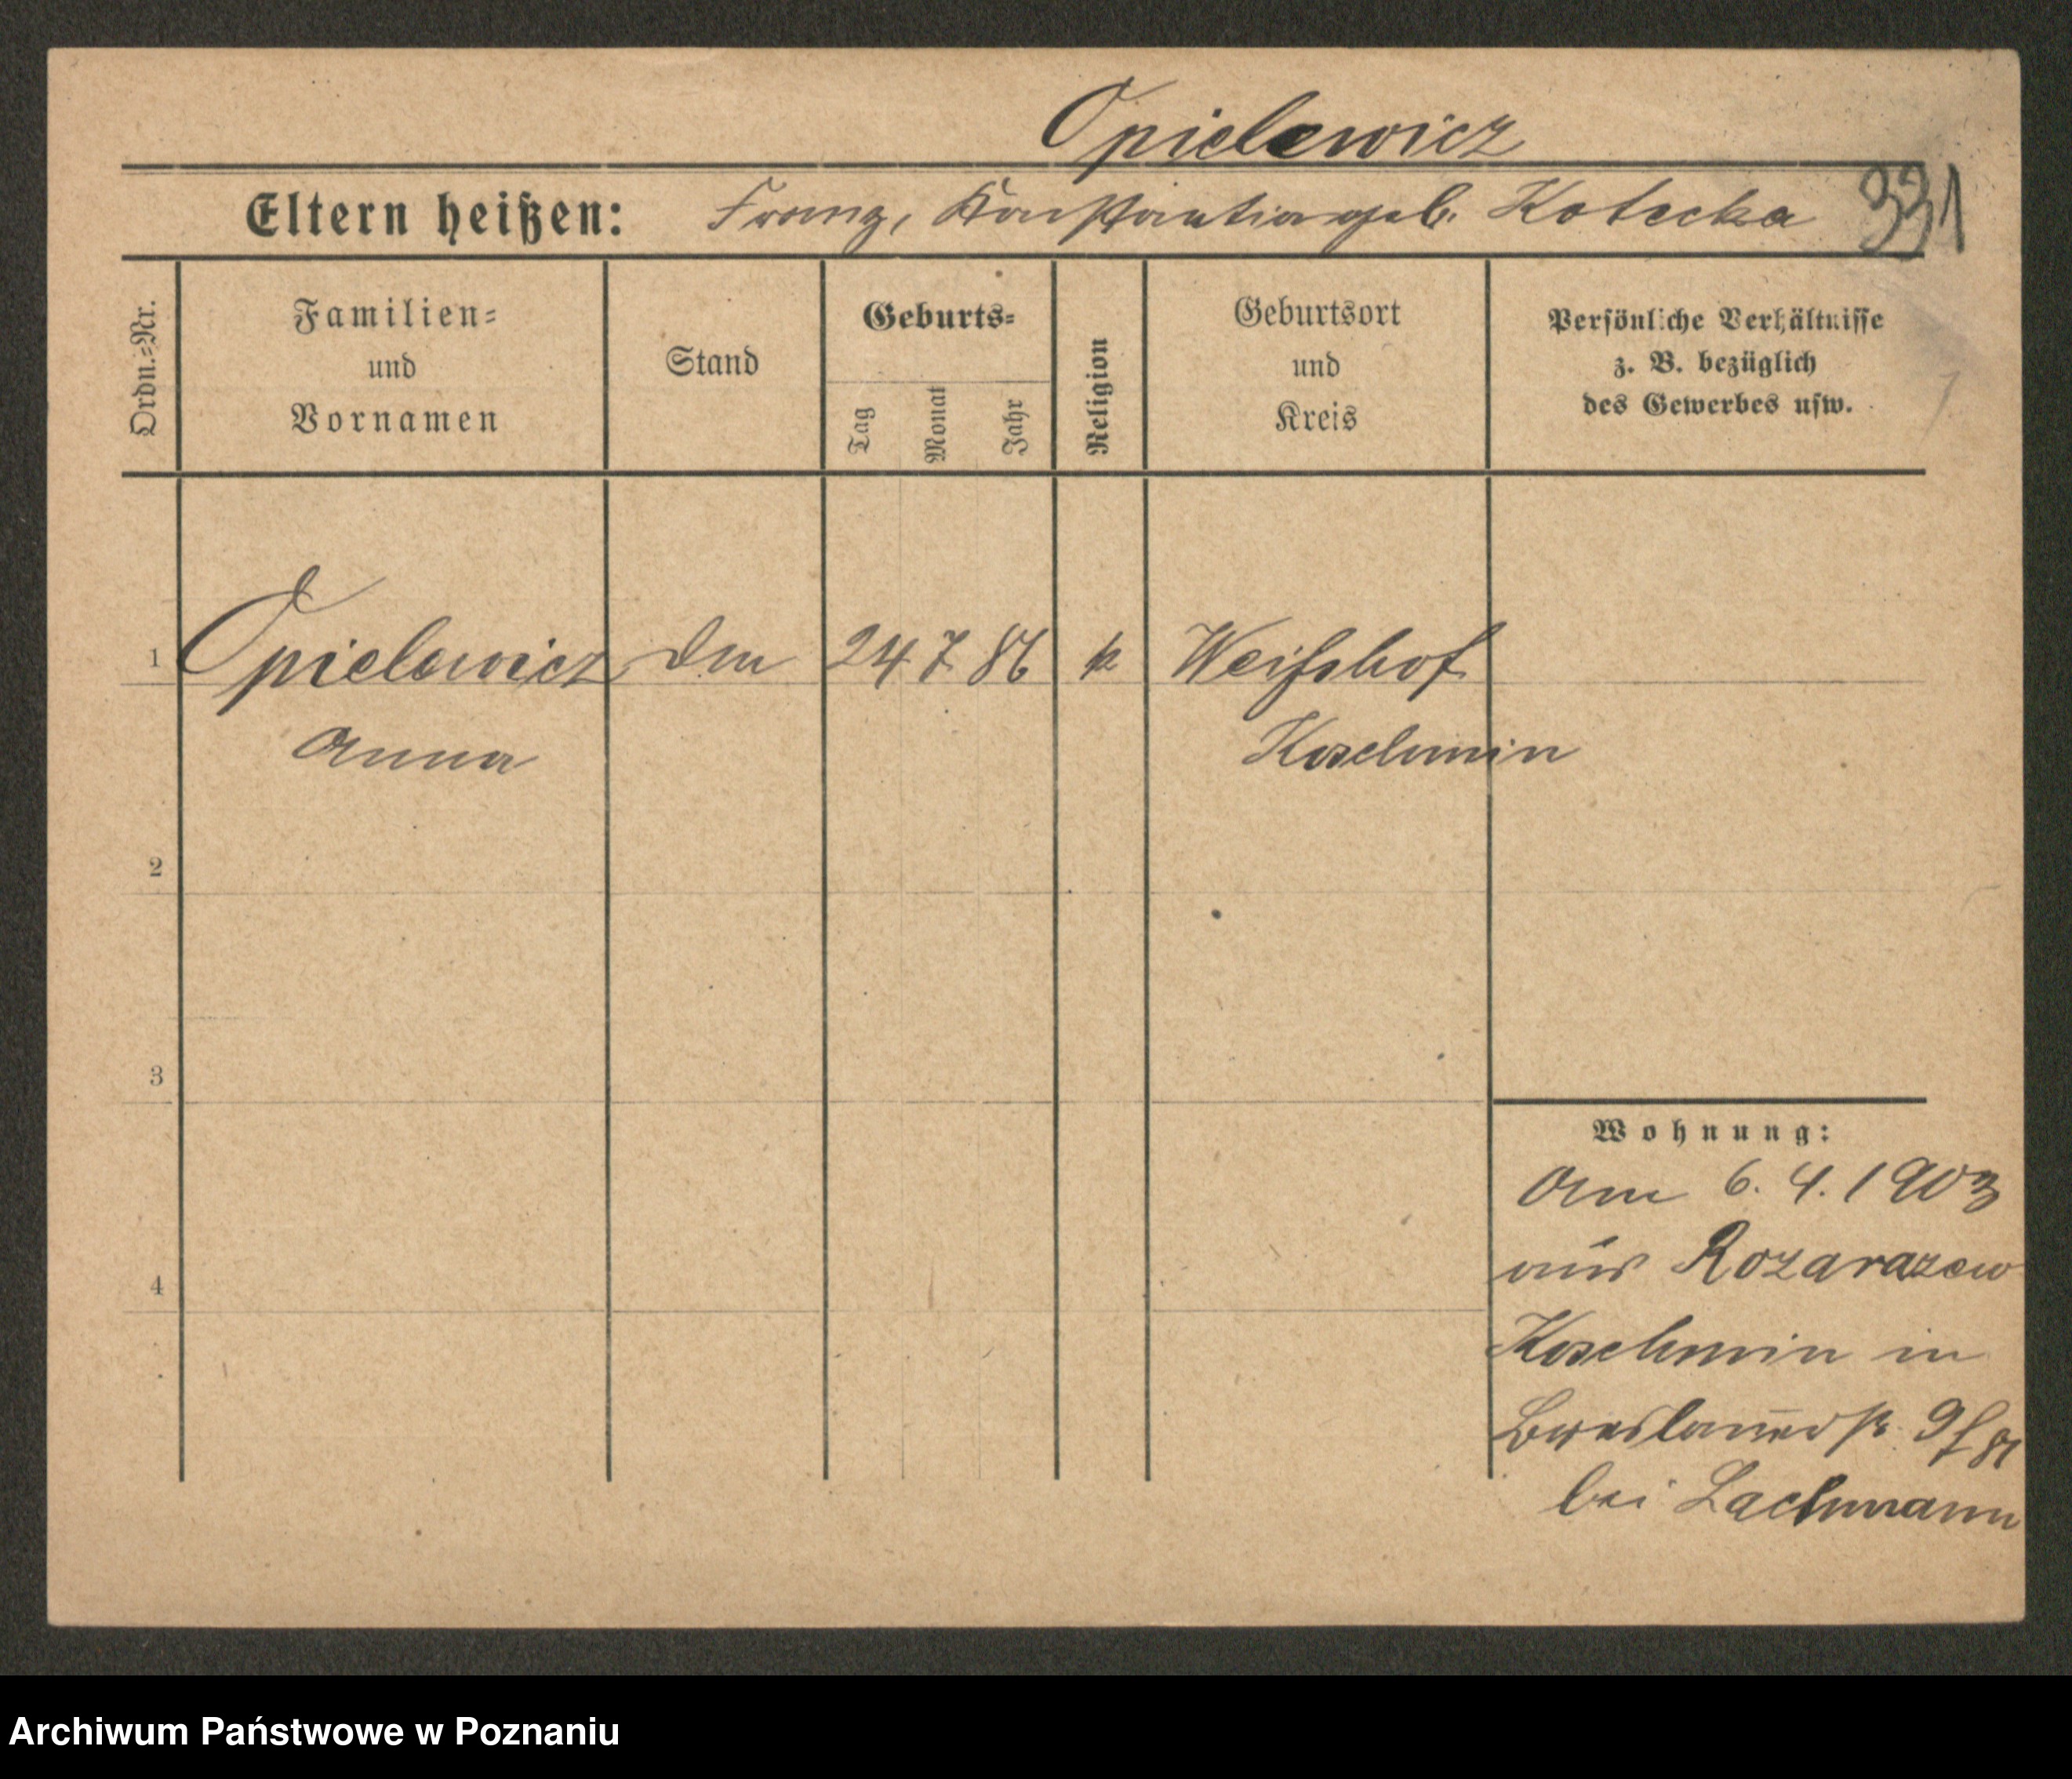 Opielewicz
Eltern heißen: Franz, Konstantia geb. Kotecka 331
Ordn.=Nr.
Familien=
und
Vornamen
Stand
Geburts=
Tag
Monat
Jahr
Religion
Geburtsort
und
Kreis
Persönliche Verhältnisse
z. B. bezüglich
des Gewerbes usw.
1 Opielewicz 24 7 86 k Weißhof
Anna Koschmin
2
3
4
Wohnung:
Am 6. 4. 1903
aus Rozarazew
Koschmin in
Breslauerstr. 9
bei Lachmann
Archiwum Państwowe w Poznaniu